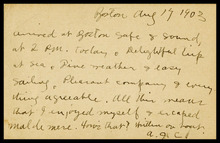 Boston Aug 19 1903
arrived at Boston safe & sound,
at 2 P.M. today. Delightful trip
at sea. Fine weather & easy
sailing. Pleasant company & every
thing agreeable. All this means
that I enjoyed myself & escaped
mal de mere. How's that? Written on boat.
A. G. C.